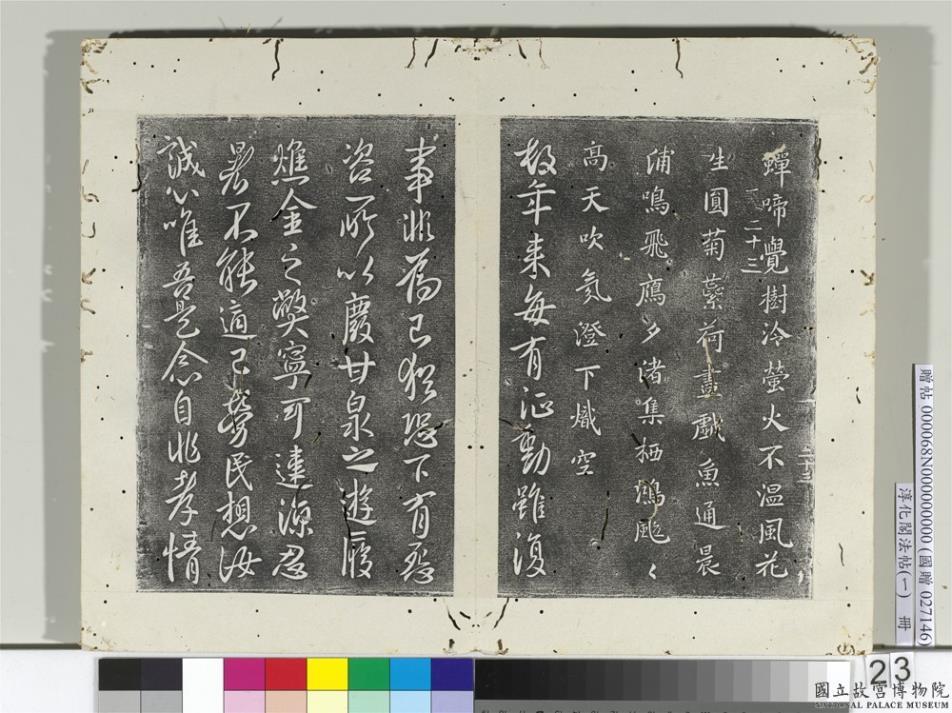 蟬啼覺樹冷螢火不溫風花
二十三
生圓菊蘂荷盡戲魚通晨
浦鳴飛鴈夕渚集栖鴻颸〻
高天吹氛澄下熾空
數年來每有征動雖復
事非為己猶恐下有怨
咨所以慶甘泉之遊履
燋金之弊寧可違涼忍
暑不能適己勞民想汝
誠心唯吾是念自非孝情
贈帖 000068N000000000 (國贈 027146)
淳化閣法帖(一) 冊
23
國立故宮博物院
NATIONAL PALACE MUSEUM